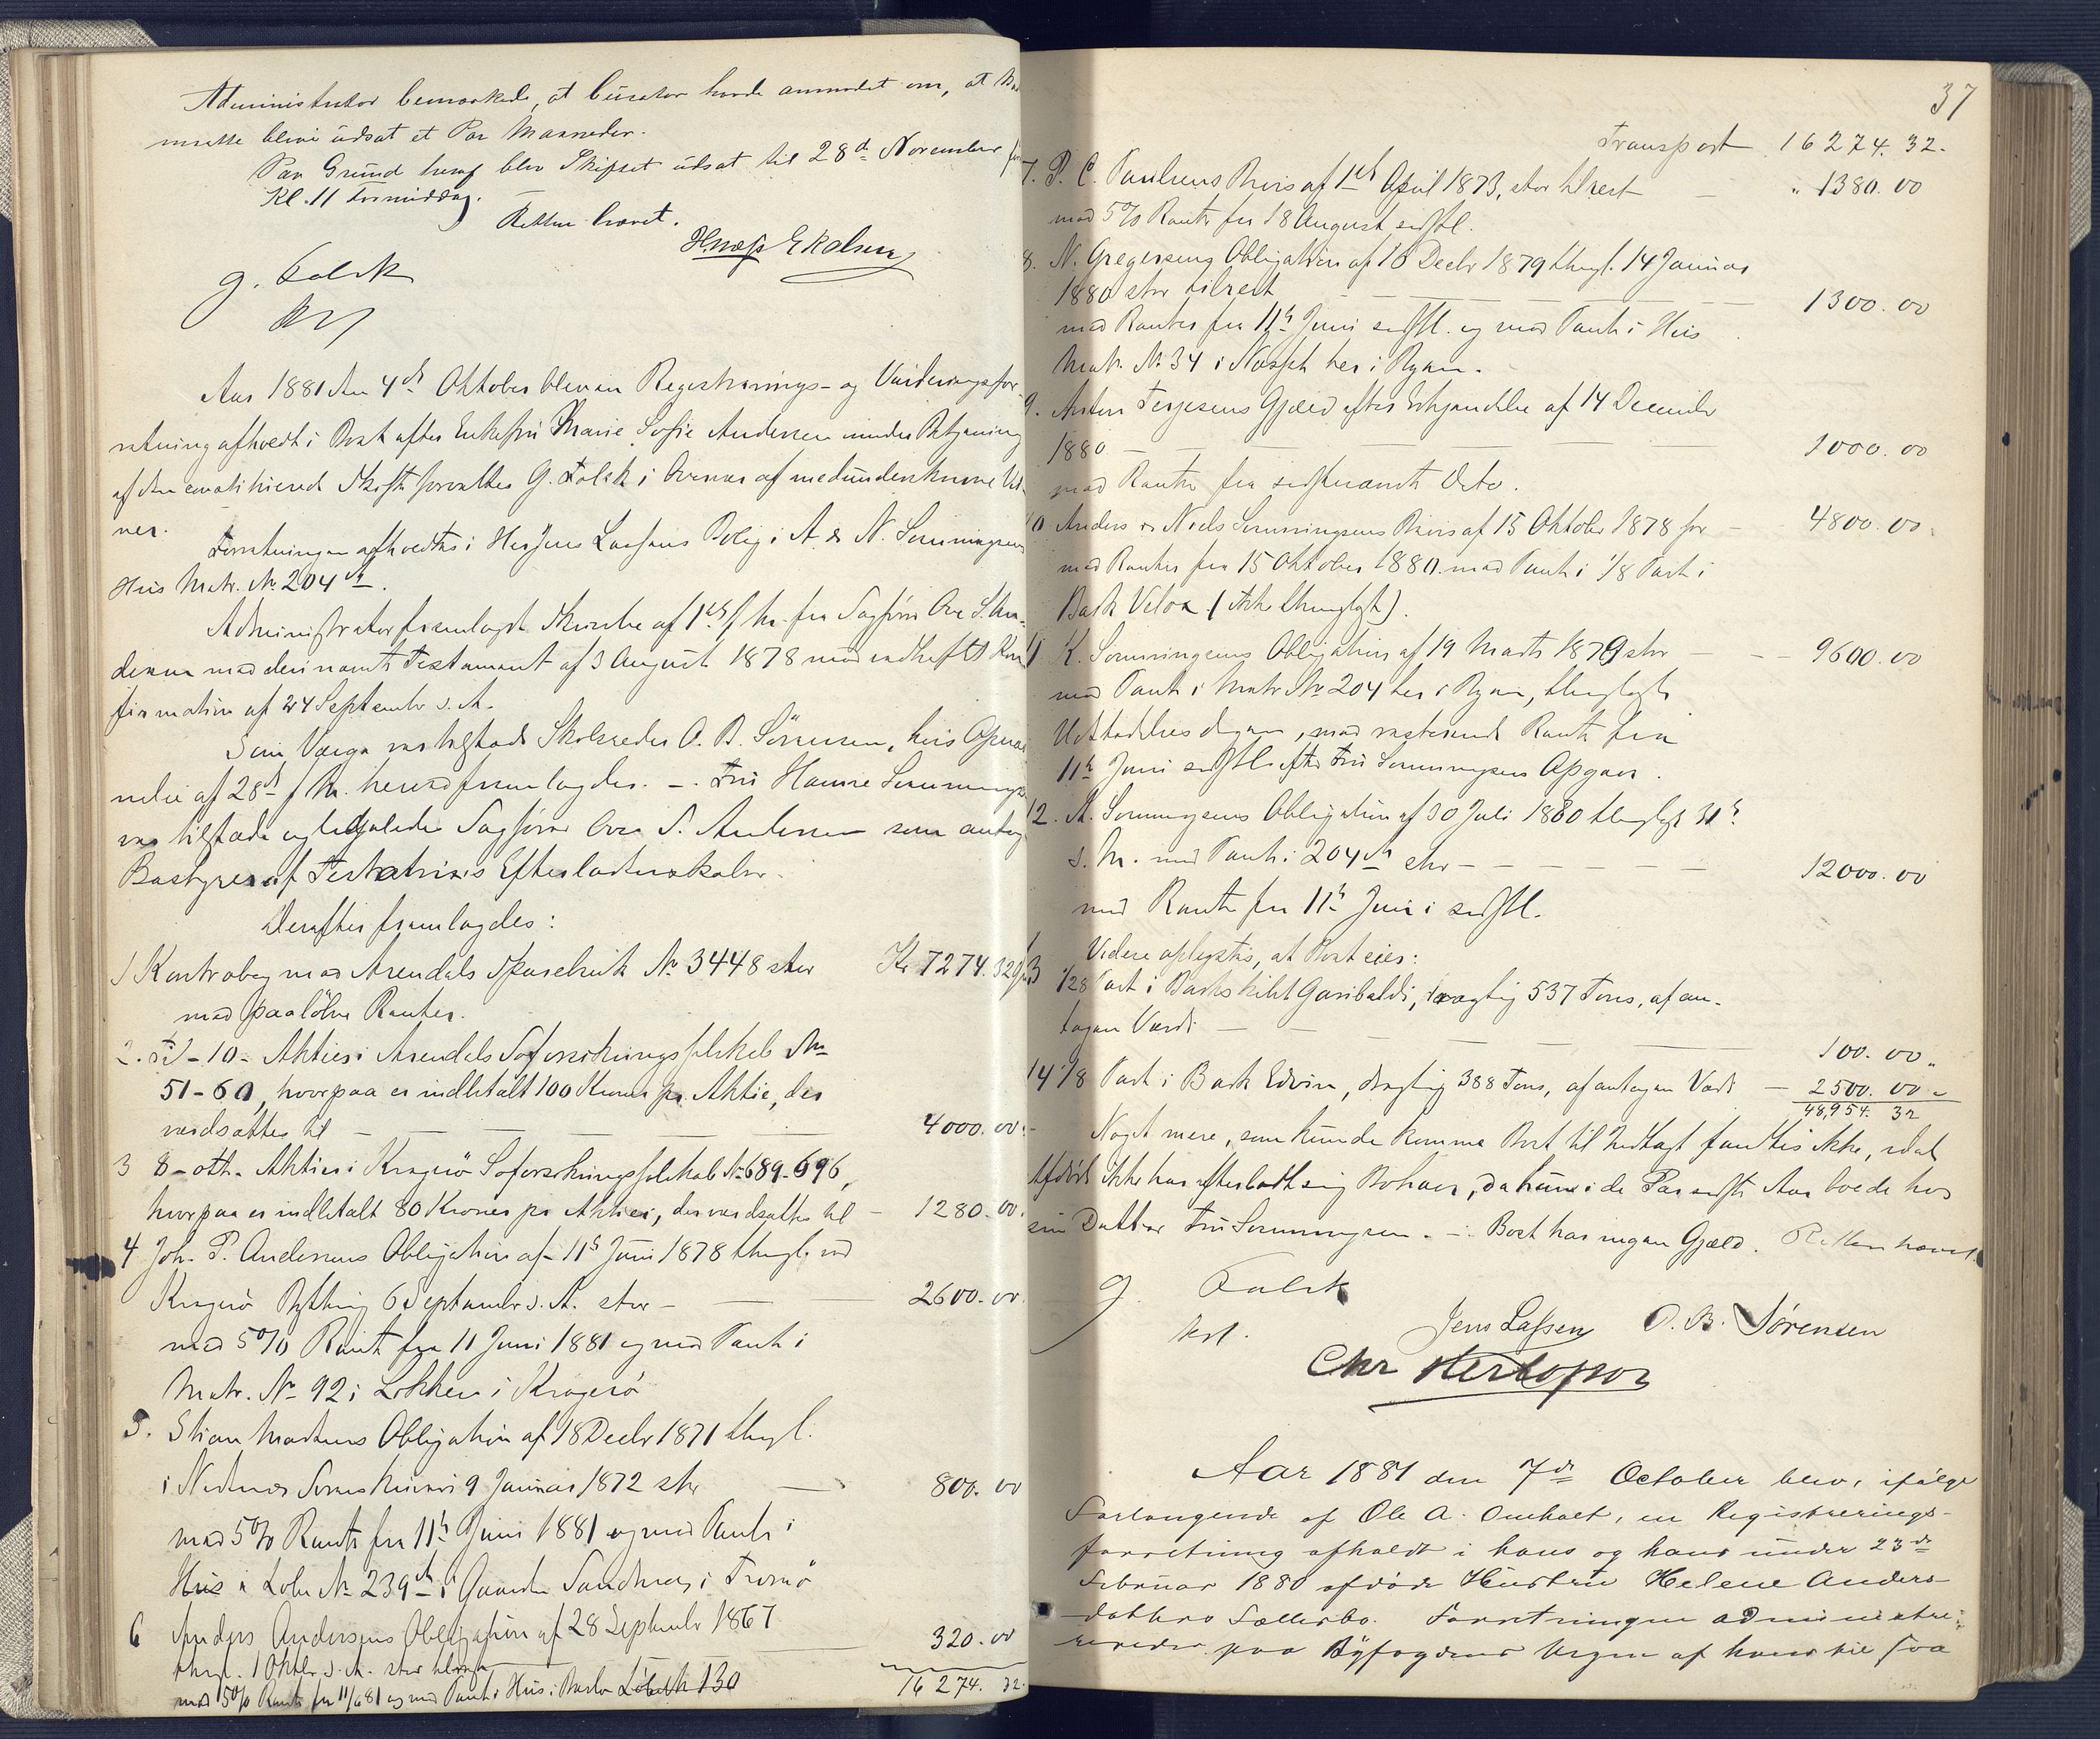 Administrator bemærkede, at Curator havde anmodet om, at
maatte blive udsat et Par Maaneder.
Paa Grund heraf blev Skiftet udsat til 28de November
Kl. 11 Formiddag.
Retten hævet.
G. Falck
Aar 1881 den 4de Oktober blev en Registrerings- og Vurderingsfor-
retning afholdt i Boet efter Enkefru Marie Sofie Andersen under Betjening
af den constituerede Skifteforvalter G. Falck i Overvær af medunderskrevne Vid-
ner.
Forretningen afholdtes i Hr. Jens Lassens Bolig i A. & N. Sørningens
Hus Matr. No 204
Administrator fremlagde Skrivelse af 1ste f. M. fra Sagfører Ove S. An-
dersen med deri nævnte Testament af 3 August 1878 med vedheftet Kon-
firmation af 24 September s. A.
Som Værge var tilstede Skolereder O. B. Sörensen, hvis Opnæv-
nelse af 28de f. M. herved fremlagdes. – Fru Hanne
var tilstede og ledsagedes Sagfører Ove S. Andersen som antog
Bestyrer af Testatrixs Efterladenskaber.
Derefter fremlagdes:
1 Kontrabog med Arendals Sparebank No 3448 stor Kr 7274.32
med paaløbne Renter.
2. ti - 10 - Aktier i Arendals Søforsikringsselskab No
51-60, hvorpaa er indbetalt 100 Kroner pr. Aktie, der
værdsattes til — 4000.00
3 8 - otte - Aktier i Kragerö Søforsikringsselskab No 689-696,
hvorpaa er indbetalt 80 Kroner pr Aktie, der værdsattes til - 1280.00
4 Joh. P. Andersens Obligation af 11te Juni 1878 thingl. ved
Kragerö Bything 6 September s. A. stor — 2600.00
med 5% Rente fra 11 Juni 1881 og med Pant i
Matr. No 92 i Lökken i Kragerö
5. Stian Madsens Obligation af 18 Decbr 1871 thingl.
i Nedenæs Sorenskriveri 9 Januar 1872 stor — 800.00
med 5% Rente fra 11te Juni 1881 og med Pant i
Hus i Löbe No 239 i Gaarden Sandnæs i Tromö
6 Anders Andersens Obligation af 28 September 1867
thingl. 1 Oktbr. s. A. stor tilrest 320.00
med 5% Rente fra 11/6 81 og med Pant i Hus i Löbe No 130 16274.32
37
Transport 16274.32.
7. P. C. Paulsens Bevis af 1ste April 1873, stor tilrest — 1380.00
med 5% Rente fra 18 August sidstl.
8. N. Gregersens Obligation af 10 Decbr 1879 thingl. 14 Januar
1880 stor tilrest — 1300.00
med Renter fra 11te Juni sidstl. og med Pant i Hus
Matr. No 34 i Næsset her i Byen.
9. Anton Terjesens Gjæld efter Erkjendelse af 14 December
1880 — 1000.00
med Rente fra sidstnævnte Dato.
10 Anders & Niels Sörningsens Bevis af 15 Oktober 1878 for — 4800.00
med Renter fra 15 Oktober 1880. med Pant i 1/8 Part i
Bark Velox (ikke thinglyst).
11 K. Sörningsens Obligation af 19 Marts 1879 stor — 9600.00
med Pant i Matr No 204 her i Byen, thinglyst
Udstedelsesdagen, med resterende Rente fra
11te Juni sidstl. efter Fru Sörningsens Opgave.
12. A. Sörningsens Obligation af 30 Juli 1880 thinglyst 31te
s. M. med Pant i 204 stor — 12000.00
med Rente fra 11te Juni sidstl.
Videre oplystes, at Boet eier:
13 1/28 Part i Barkskibet Garibaldi, drægtig 537 Tons, af an-
tagen Værdi — 100.00
14 1/8 Part i Bark Edvin, drægtig 388 Tons, af antagen Værdi — 2500.00
48,954.32
Noget mere, som kunde komme Boet til Indtægt fandtes ikke, idet
Afdöde ikke har efterladt sig Bohave, da hun i de Par sidste Aar boede hos
sin Datter Fru Sörningsen. - Boet har ingen Gjæld. Retten hævet.
G. Falck
kst.
Jens Lassen O. B. Sørensen
Aar 1881 den 7de October blev, ifølge
Forlangende af Ole A. Omholt, en Registrerings-
forretning afholdt i hans og hans under 23de
Februar 1880 afdøde Hustru Helene Anders-
datters Fællesbo. Forretningen administre-
redes paa Byfogdens Vegne af hans til saa